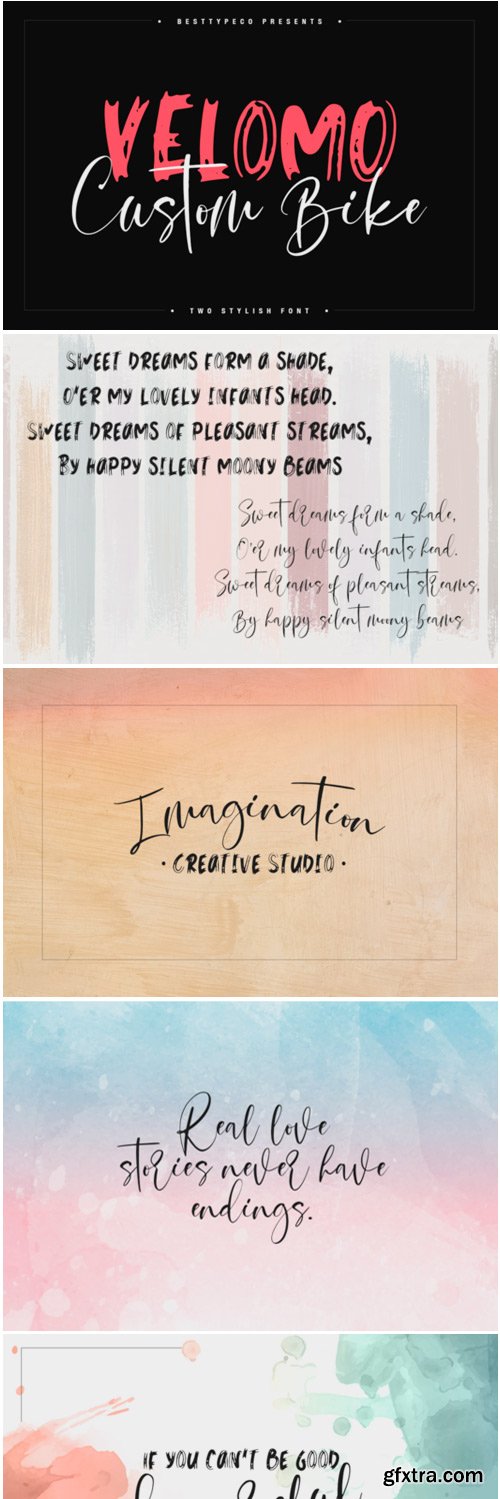 BESTTYPECO PRESENTS
VELOMO
Custom Bike
TWO STYLISH FONT
SWEET DREAMS FORM A SHADE,
O'ER MY LOVELY INFANTS HEAD.
SWEET DREAMS OF PLEASANT STREAMS,
BY HAPPY SILENT MOONY BEAMS
Sweet dreams form a shade,
O'er my lovely infants head.
Sweet dreams of pleasant streams,
By happy silent moony beams
Imagination
• CREATIVE STUDIO •
Real love
stories never have
endings.
IF YOU CAN'T BE GOOD
gfxtra.com